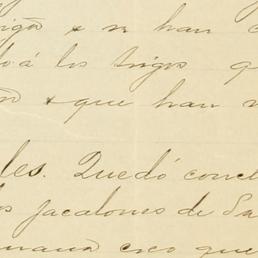 & se han
los trigos
& que han
les. Quedó concl
os jacalones de Sa
mana creo que